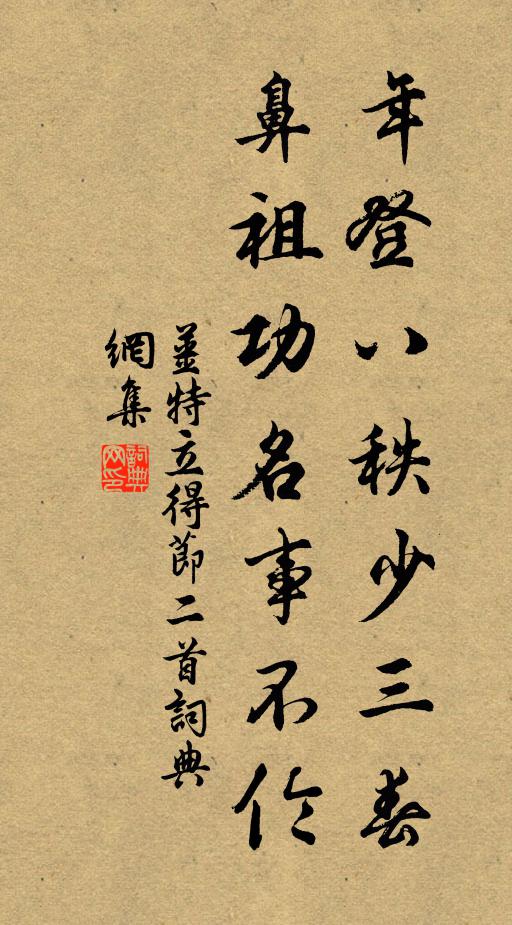 年登八秩少三春
鼻祖功名事不伶
姜特立得節二首詞典
網集
詞典
网印